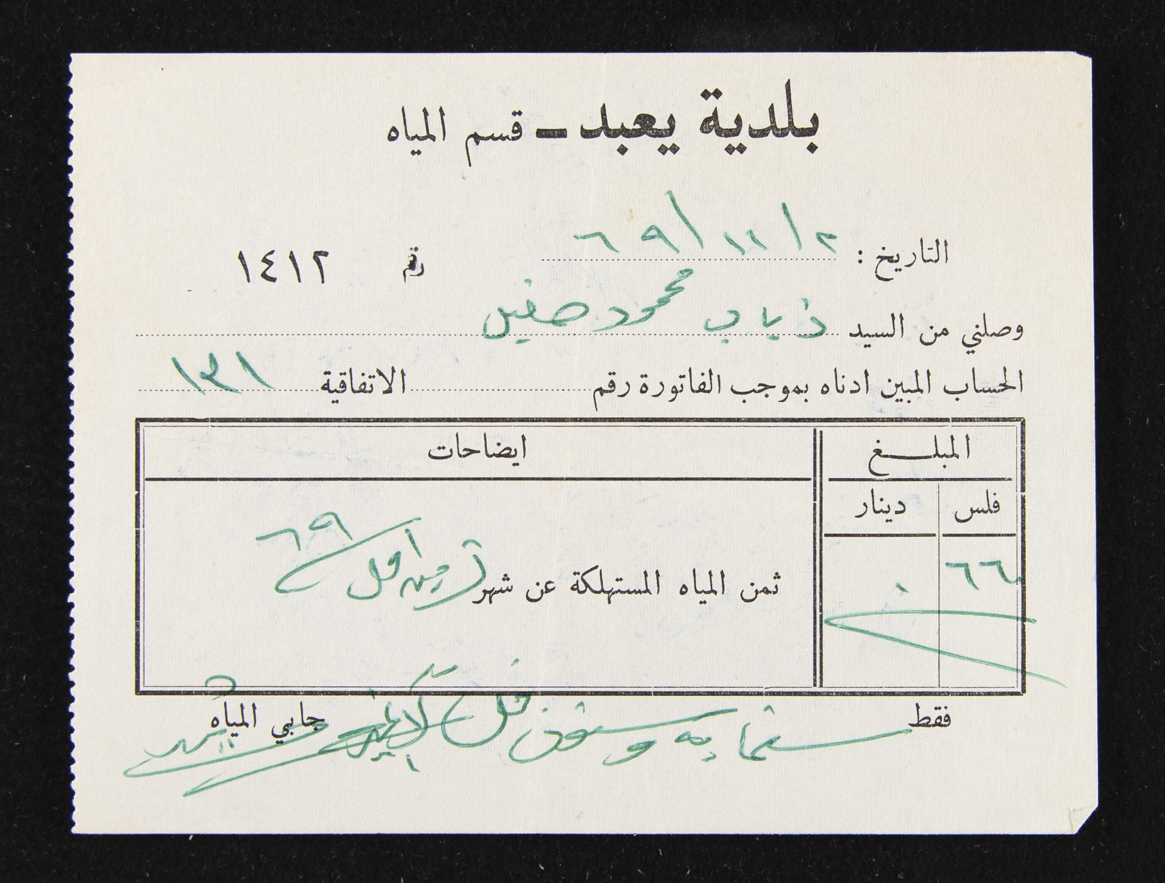 بلدية يعبد ـ قسم المياه
التاريخ : ٢ / ١٢ / ٦٩
رقم ١٤١٢
وصلني من السيد ذياب محمود
الحساب المبين ادناه بموجب الفاتورة رقم الاتفاقية ١٣١
المبلغ ايضاحات
فلس دينار
٦٦٠ ٠ ثمن المياه المستهلكة عن شهر تشرين اول ٦٩
فقط ستماية وستون فلس لاغير جابي المياه